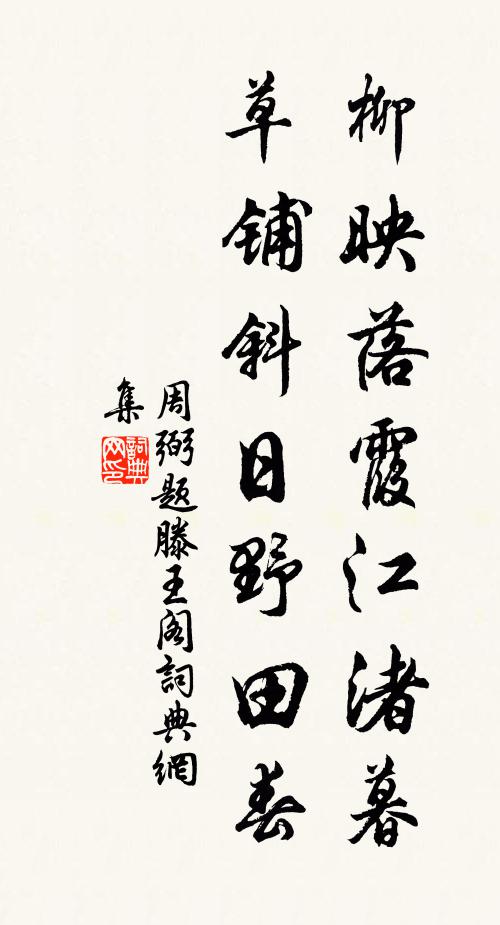 柳映落霞江渚暮
草铺斜日野田春
周弼题滕王阁詞典網
集
詞典
网印